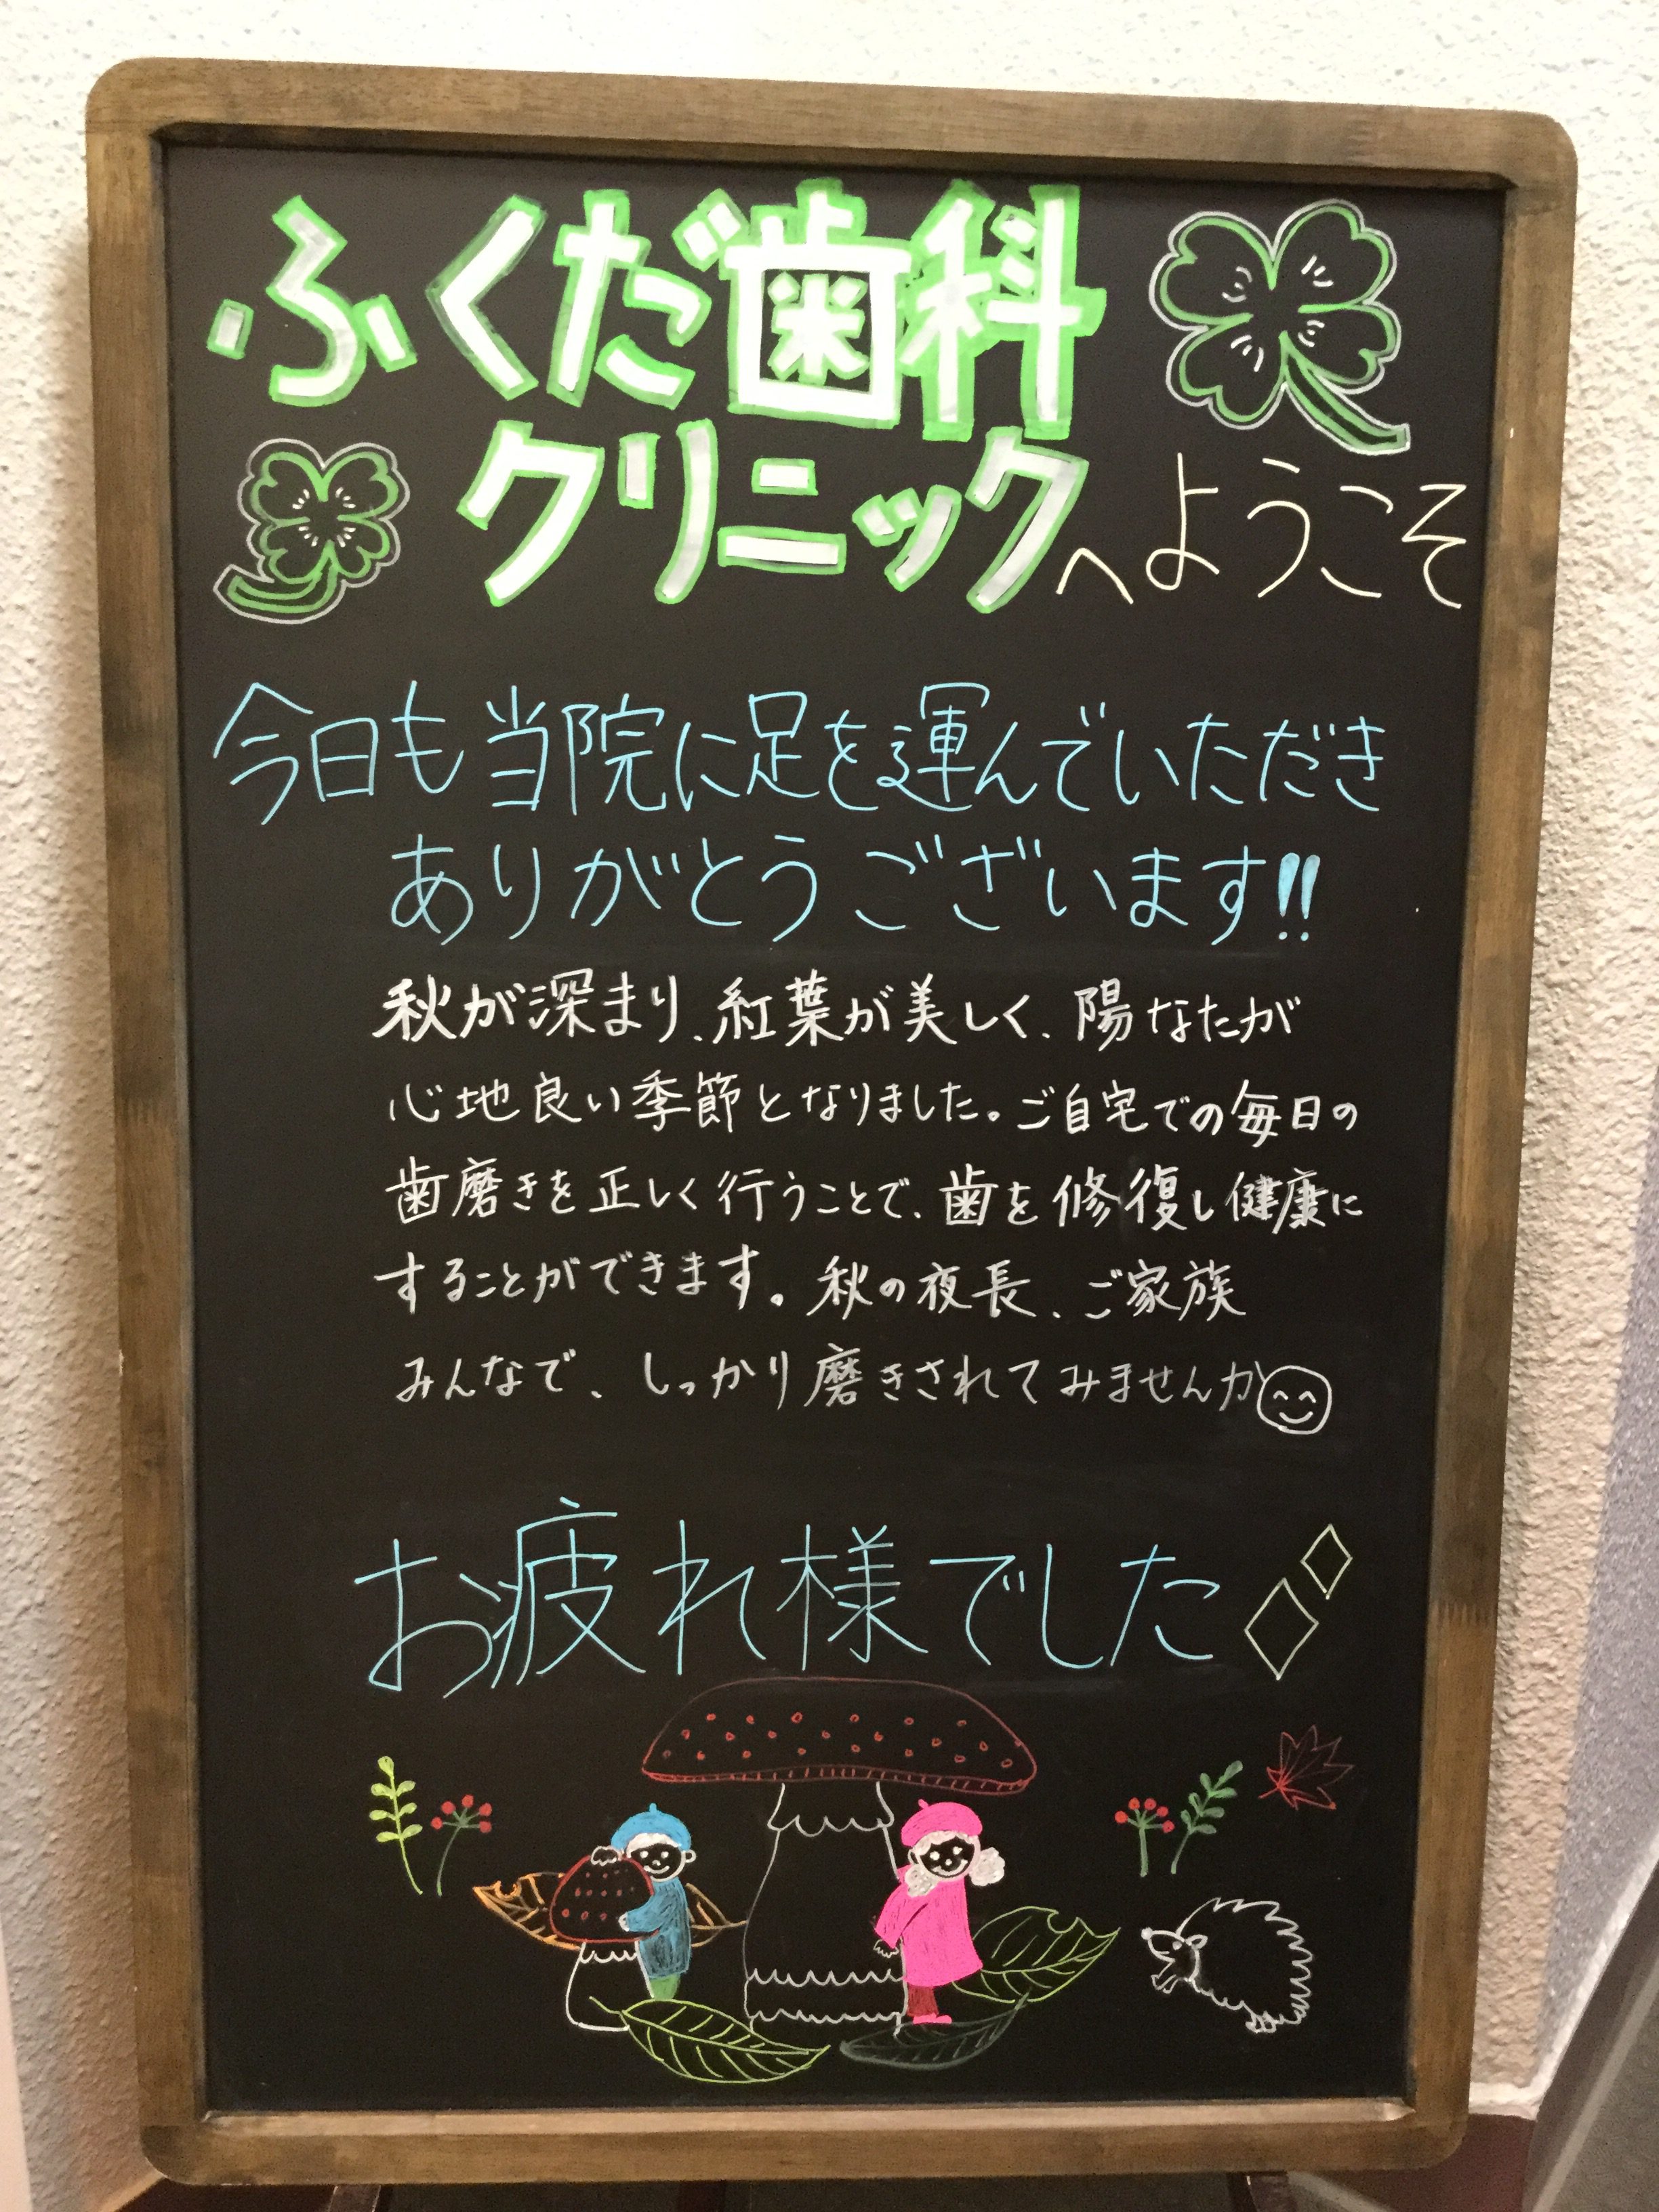 ふくだ歯科
クリニックへようこそ
今日も当院に足を運んでいただき
ありがとうございます!!
秋が深まり、紅葉が美しく、陽なたが
心地良い季節となりました。ご自宅での毎日の
歯磨きを正しく行うことで、歯を修復し健康に
することができます。秋の夜長、ご家族
みんなで、しっかり磨きされてみませんか
お疲れ様でした